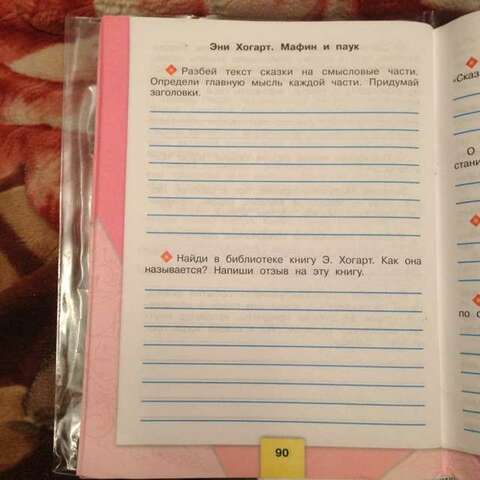 Эни Хогарт. Мафин и паук
Разбей текст сказки на смысловые части.
Определи главную мысль каждой части. Придумай
заголовки.
Найди в библиотеке книгу Э. Хогарт. Как она
называется? Напиши отзыв на эту книгу.
90
«Сказ
О
стани
по с